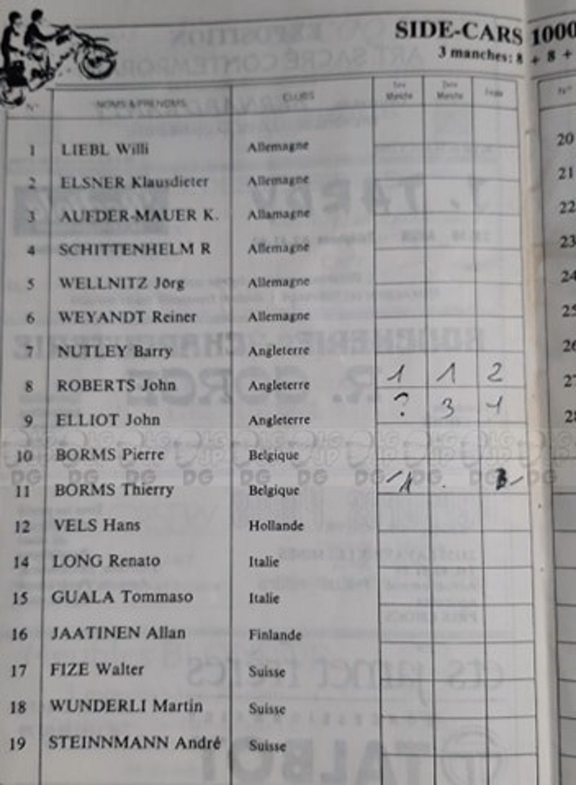 SIDE-CARS 1000
3 manches: 8 + 8 +
N° NOMS & PRENOMS CLUBS 1ère Manche 2ème Manche Finale N°
1 LIEBL Willi Allemagne 20
2 ELSNER Klausdieter Allemagne 21
3 AUFDER-MAUER K. Allamagne 22
4 SCHITTENHELM R Allemagne 23
5 WELLNITZ Jörg Allemagne 24
6 WEYANDT Reiner Allemagne 25
7 NUTLEY Barry Angleterre 26
8 ROBERTS John Angleterre 1 1 2 27
9 ELLIOT John Angleterre ? 3 1 28
10 BORMS Pierre Belgique
11 BORMS Thierry Belgique
12 VELS Hans Hollande
14 LONG Renato Italie
15 GUALA Tommaso Italie
16 JAATINEN Allan Finlande
17 FIZE Walter Suisse
18 WUNDERLI Martin Suisse
19 STEINNMANN André Suisse